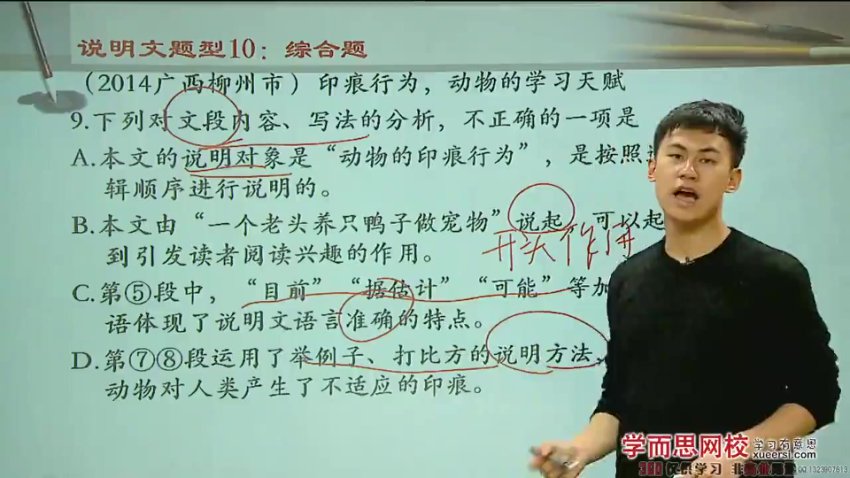 说明文题型10：综合题
（2014广西柳州市）印痕行为，动物的学习天赋
9.下列对文段内容、写法的分析，不正确的一项是
A.本文的说明对象是“动物的印痕行为”，是按照
辑顺序进行说明的。
B.本文由“一个老头养只鸭子做宠物”说起，可以起
到引发读者阅读兴趣的作用。
开头作用
C.第⑤段中，“目前”“据估计”“可能”等加
语体现了说明文语言准确的特点。
D.第⑦⑧段运用了举例子、打比方的说明方法，
动物对人类产生了不适应的印痕。
学而思网校
学习有意思
xueersi.com
360仅供学习